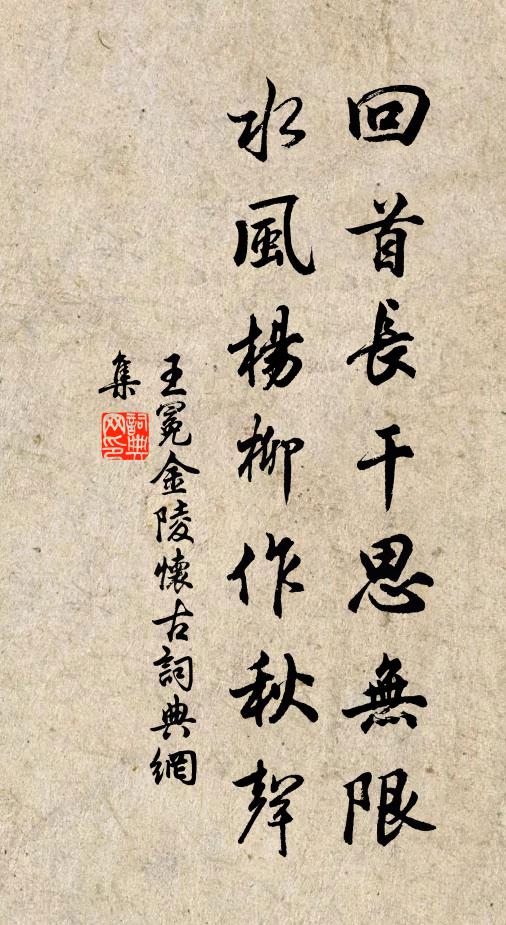 回首長干思無限
水風楊柳作秋聲
王冕金陵懷古詞典網
集
詞典
网印